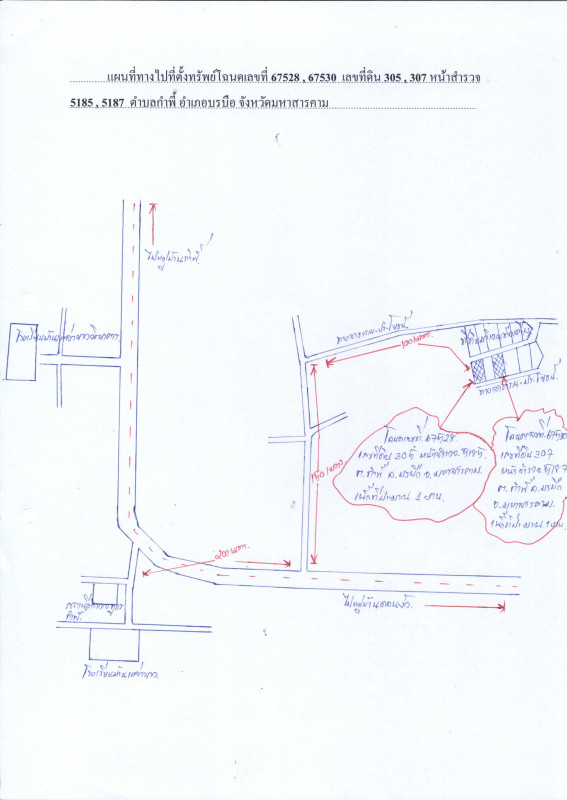 แผนที่ทางไปที่ตั้งทรัพย์โฉนดเลขที่ 67528 , 67530 เลขที่ดิน 305 , 307 หน้าสำรวจ
5185 , 5187 ตำบลกำพี้ อำเภอบรบือ จังหวัดมหาสารคาม
ไปหมู่บ้านกำพี้
ทางสาธารณะประโยชน์
100 เมตร
ทางสาธารณะประโยชน์
โฉนดเลขที่ 67528
เลขที่ดิน 305 หน้าสำรวจ 5185
ต.กำพี้ อ.บรบือ จ.มหาสารคาม
เนื้อที่ประมาณ 1 งาน
โฉนดเลขที่ 67530
เลขที่ดิน 307
หน้าสำรวจ 5187
ต.กำพี้ อ.บรบือ
จ.มหาสารคาม
เนื้อที่ประมาณ 1 งาน
150 เมตร
200 เมตร
กำพี้